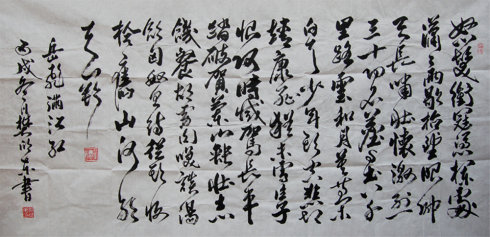 怒髮衝冠憑欄處
瀟雨歇抬望眼仰
天長嘯壯懷激烈
三十功名塵與土八千
里路雲和月莫等閑
白了少年頭空悲切
靖康恥猶未雪臣子
恨何時滅駕長車
踏破賀蘭山缺壯志
饑餐胡虜肉笑談渴
飲匈奴血待從頭收
拾舊山河朝
天闕
岳飛滿江紅
丙戌冬月樊東書